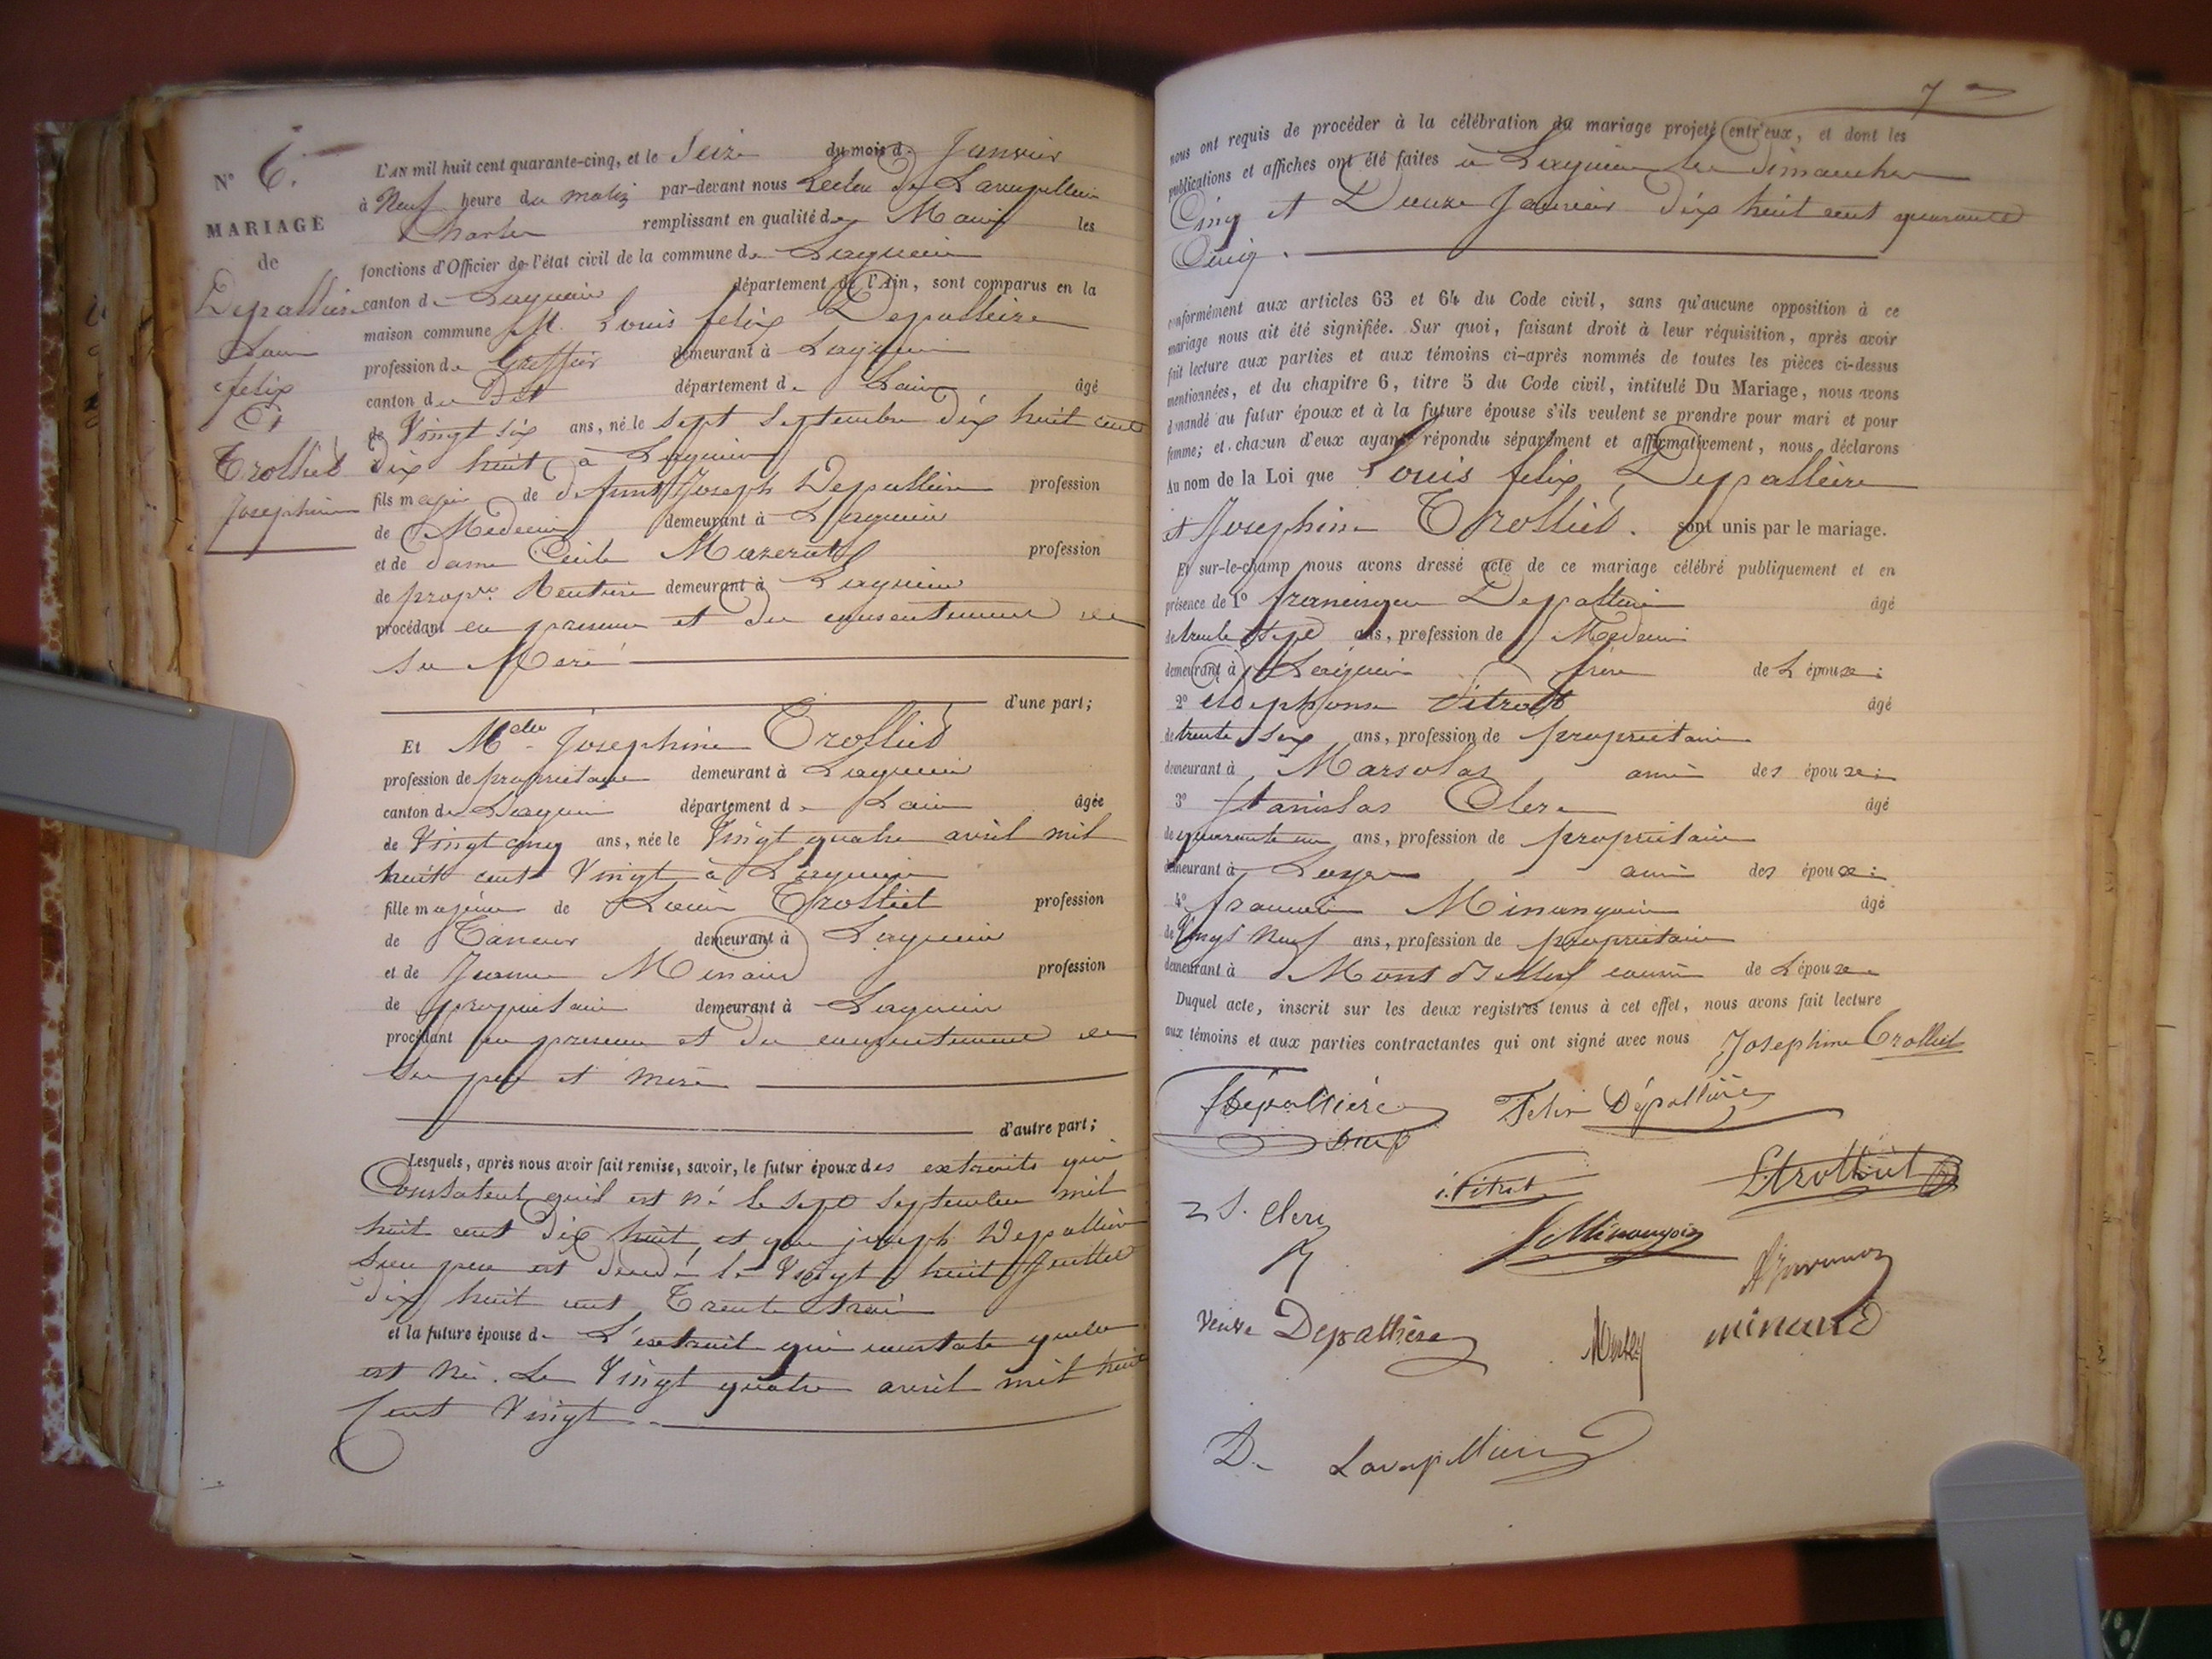 N° 6.
MARIAGE
de
Depallière
Louis
felix
Et
Trolliet
Josephine
L'AN mil huit cent quarante-cinq, et le Seize du mois de Janvier
à Neuf heure du matin par-devant nous
Charles remplissant en qualité de Maire les
fonctions d'Officier de l'état civil de la commune de Lagnieu
canton de Lagnieu département de l'Ain, sont comparus en la
maison commune M. Louis felix Depallière
profession de Greffier demeurant à Lagnieu
canton du Dit département de Lain âgé
de Vingt six ans, né le sept Septembre dix huit cent
dix huit à Lagnieu
fils majeur de defunt Joseph Depallière profession
de Medecin demeurant à Lagnieu
et de dame Cécile Mazerat profession
de propre Rentière demeurant à Lagnieu
procédant en presence et du consentement de
sa Mère
d'une part;
Et Melle Josephine Trolliet
profession de propriétaire demeurant à Lagnieu
canton de Lagnieu département de Lain âgée
de Vingt cinq ans, née le Vingt quatre avril mil
huit cent Vingt à Lagnieu
fille majeure de Louis Trolliet profession
de Taneur demeurant à Lagnieu
et de Jeanne Minand profession
de propriétaire demeurant à Lagnieu
procédant en presence et du consentement de
ses père et mère
d'autre part;
Lesquels, après nous avoir fait remise, savoir, le futur époux des extraits qui
Constatent quil est né le sept septembre mil
huit cent dix huit et que joseph Depallière
Son père est décédé le Vingt huit Juillet
dix huit cent Trente trois
et la future épouse de L'extrait qui constate quelle
est née. Le Vingt quatre avril mil huit
Cent Vingt
7
nous ont requis de procéder à la célébration du mariage projeté entr'eux, et dont les
publications et affiches ont été faites à Lagnieu les dimanches
Cinq et Douze Janvier dix huit cent quarante
Cinq.
conformément aux articles 63 et 64 du Code civil, sans qu'aucune opposition à ce
mariage nous ait été signifiée. Sur quoi, faisant droit à leur réquisition, après avoir
fait lecture aux parties et aux témoins ci-après nommés de toutes les pièces ci-dessus
mentionnées, et du chapitre 6, titre 5 du Code civil, intitulé Du Mariage, nous avons
demandé au futur époux et à la future épouse s'ils veulent se prendre pour mari et pour
femme; et chacun d'eux ayant répondu séparément et affirmativement, nous déclarons
Au nom de la Loi que Louis felix Depallière
et Josephine Trolliet. sont unis par le mariage.
Et sur-le-champ nous avons dressé acte de ce mariage célébré publiquement et en
présence de 1° francisque Depallière âgé
de trente Sept ans, profession de Medecin
demeurant à Lagnieu frère de L époux;
2° Vitrat âgé
de trente six ans, profession de propriétaire
demeurant à Marsolas ami des époux;
3° Stanislas Clerc âgé
de quarante un ans, profession de propriétaire
demeurant à ami des époux;
4° francois Minangoin âgé
de Vingt Neuf ans, profession de propriétaire
demeurant à cousin de Lépouse
Duquel acte, inscrit sur les deux registres tenus à cet effet, nous avons fait lecture
aux témoins et aux parties contractantes qui ont signé avec nous Josephine Trolliet
f Dépallière Felix Dépallière
i. Vitrat L trolliet
S. Clerc f. Minangoin
Veuve Depallière minand